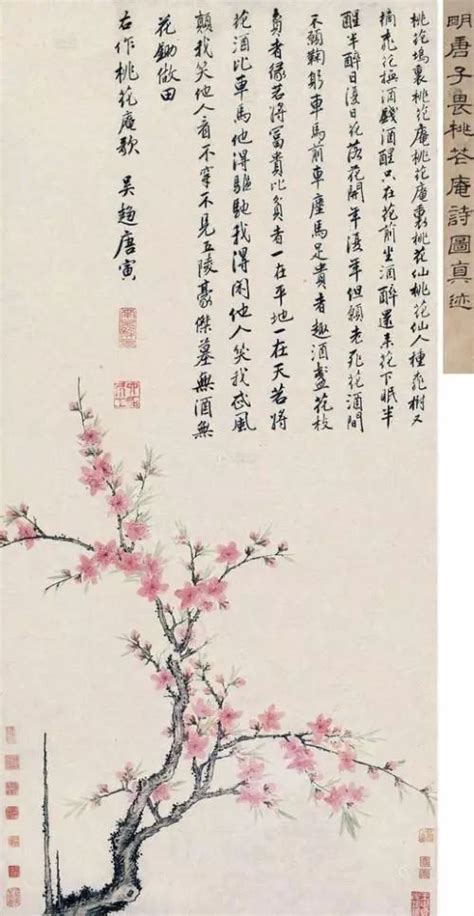 明唐子畏桃花庵詩圖真迹
桃花塢裏桃花庵桃花庵裏桃花仙桃花仙人種桃樹又
摘桃花換酒錢酒醒只在花前坐酒醉還来花下眠半
醒半醉日復日花落花開年復年但願老死花酒間
不願鞠躬車馬前車塵馬足貴者趣酒盞花枝
貧者緣若將富貴比貧者一在平地一在天若將
花酒比車馬他得驅馳我得閑他人笑我忒風
顛我笑他人看不穿不見五陵豪傑墓無酒無
花鋤做田
右作桃花庵歌 吳趨唐寅